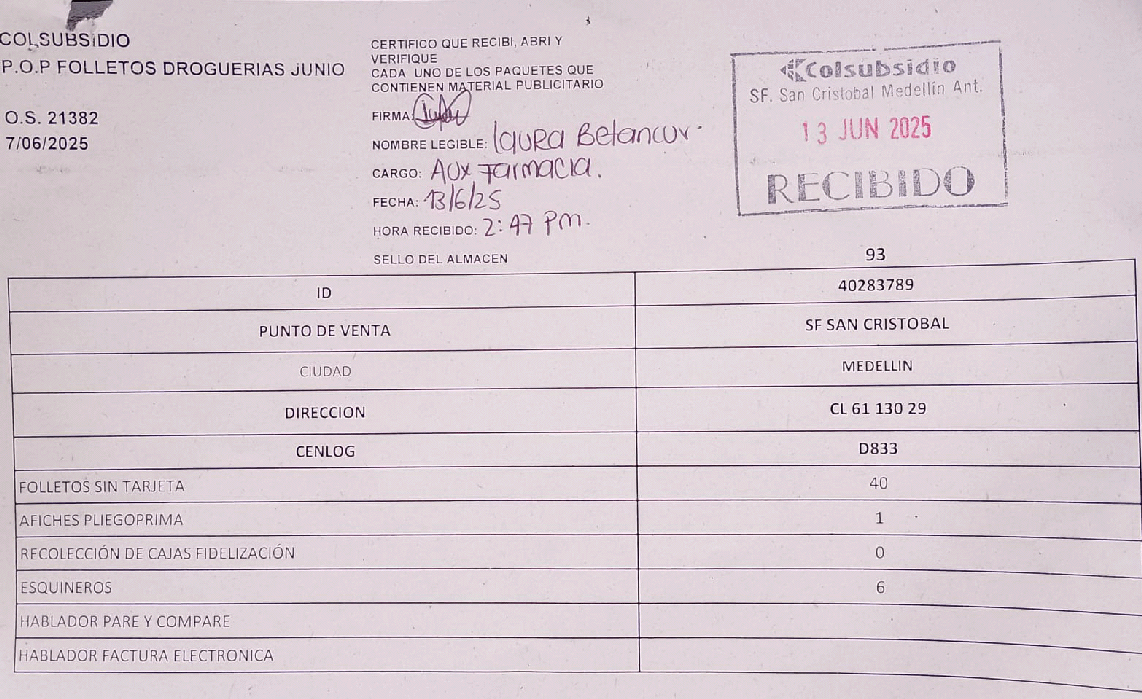 COLSUBSIDIO
P.O.P FOLLETOS DROGUERIAS JUNIO
O.S. 21382
7/06/2025
CERTIFICO QUE RECIBI, ABRI Y
VERIFIQUE
CADA UNO DE LOS PAQUETES QUE
CONTIENEN MATERIAL PUBLICITARIO
FIRMA:
NOMBRE LEGIBLE: Laura Betancur.
CARGO: Aux Farmacia.
FECHA: 13/6/25
HORA RECIBIDO: 2:47 Pm.
SELLO DEL ALMACEN
Colsubsidio
SF. San Cristobal Medellín Ant.
13 JUN 2025
RECIBIDO
93
ID 40283789
PUNTO DE VENTA SF SAN CRISTOBAL
CIUDAD MEDELLIN
DIRECCION CL 61 130 29
CENLOG D833
FOLLETOS SIN TARJETA 40
AFICHES PLIEGOPRIMA 1
RECOLECCIÓN DE CAJAS FIDELIZACIÓN 0
ESQUINEROS 6
HABLADOR PARE Y COMPARE
HABLADOR FACTURA ELECTRONICA